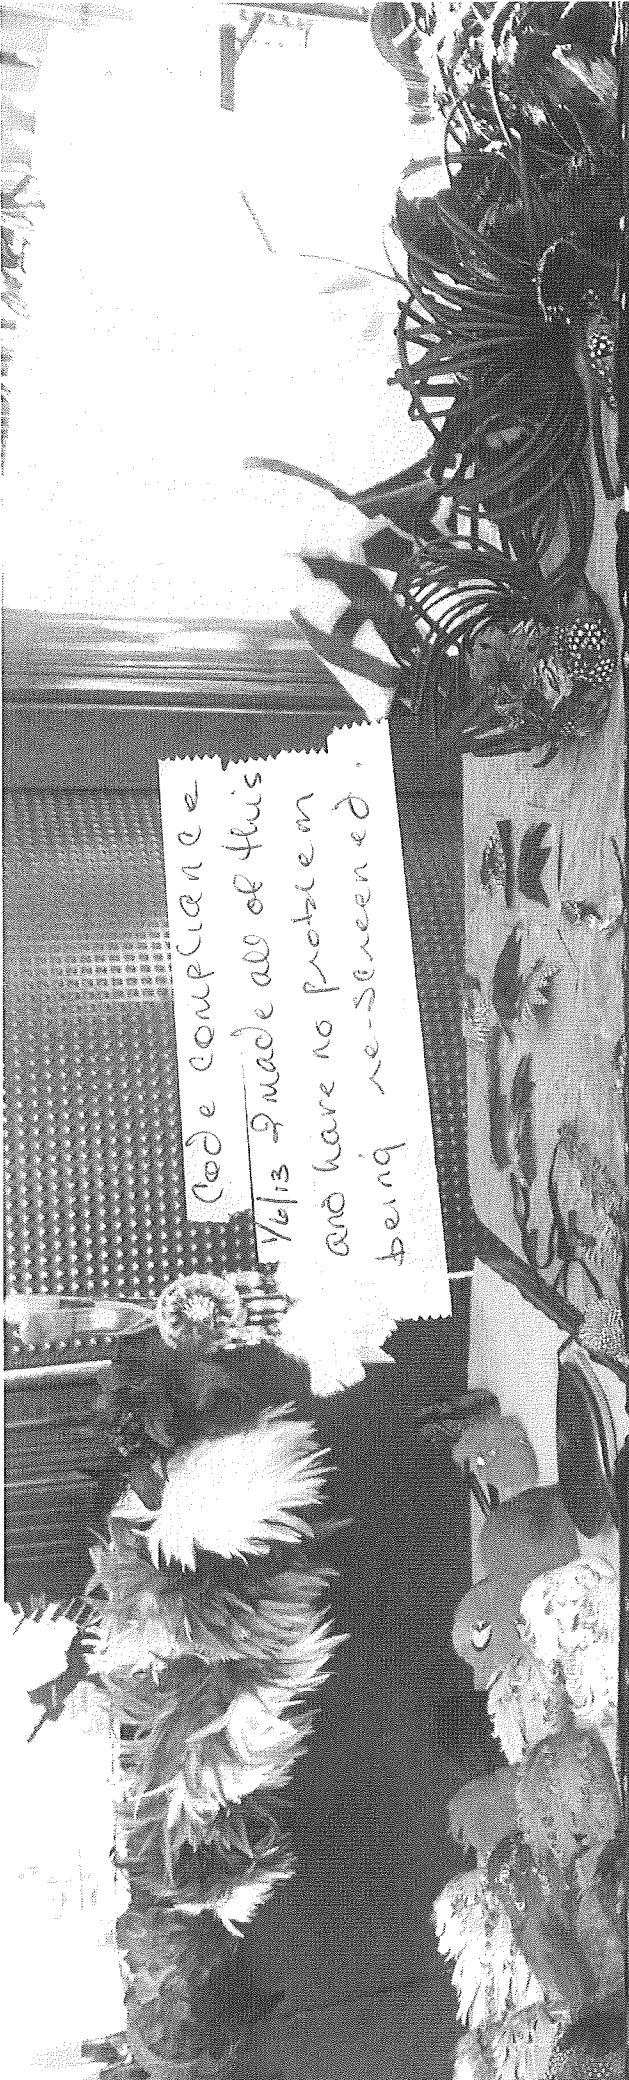 Code compliance
1/6/13 I made all of this
and have no problem
being re-screened.